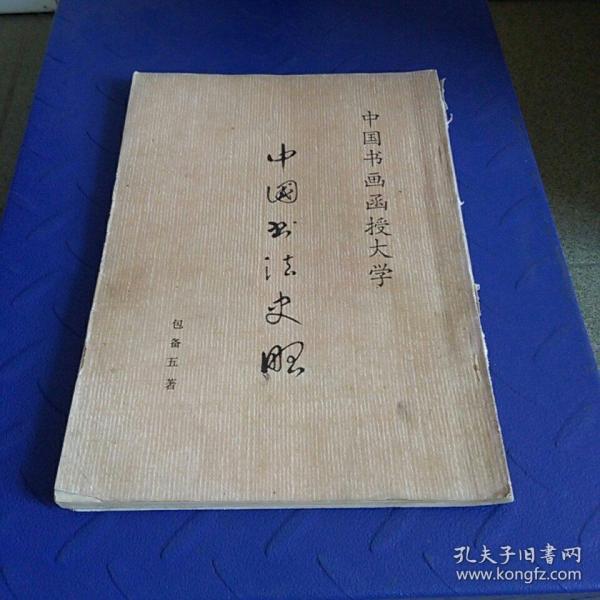 中国书画函授大学
中國书法史略
包备五著
孔夫子旧書网
www.kongfz.com